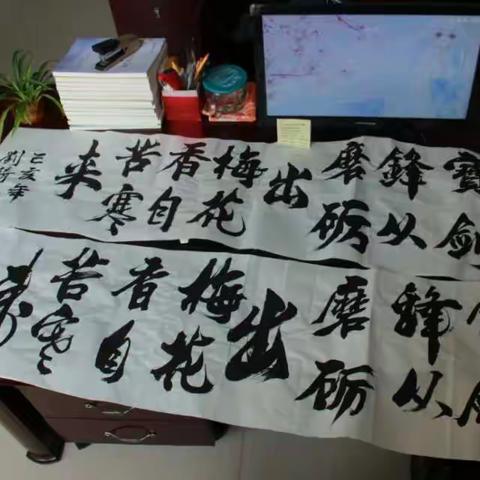 寶劍
鋒从
磨砺
出
梅花
香自
苦寒
来
己亥年
鋒从
磨砺
出
梅花
香自
苦寒
来